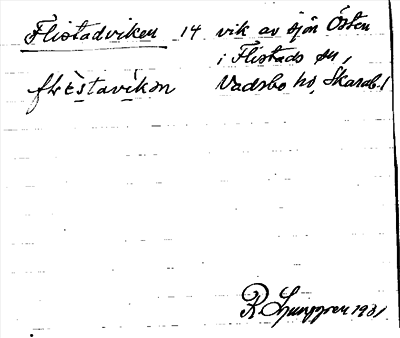 Flistadviken 14 vik av sjön Östen
i Flistads sn,
flìstavíkən Vadsbo hd, Skarab. l
R. Ljunggren 1931